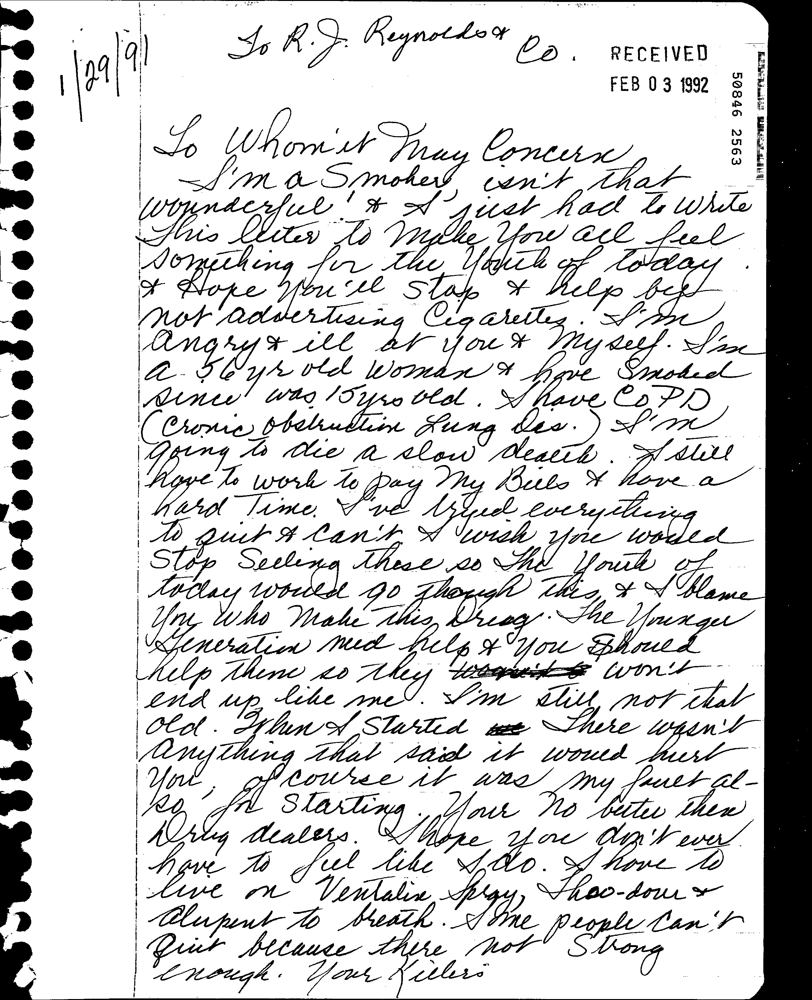 To R. J. Reynolds & Co.
1/29/91
RECEIVED
FEB 03 1992
50846 2563
To Whom it May Concern
I'm a Smoker, isn't that
wounnderful! & I just had to write
This letter to Make You all feel
something for the Youth of today.
& Hope You'll Stop & help by
not advertising Cigarettes. I'm
angry & ill at you & Myself. I'm
a 56 yr old Woman & have Smoked
since was 15 yrs old. I have COPD
(Cronic obstruction Lung Des.) I'm
going to die a slow death. I still
have to work to pay My Bills & have a
hard Time. I've tryed everything
to quit & can't I wish you would
Stop Selling these so The Youth of
today would go though this, & I blame
You who Make this Drug. The Younger
Generation need help & You Should
help them so they won't
end up like me. I'm still not that
old. When I Started There wasn't
anything that said it would hurt
You, of course it was my fault al-
so In Starting. Your no better then
Drug dealers. I hope you don't ever
have to feel like I do. I have to
live on Ventalin Spray, &
alupent to breath. Some people can't
Quit because there not Strong
enough. Your Killers